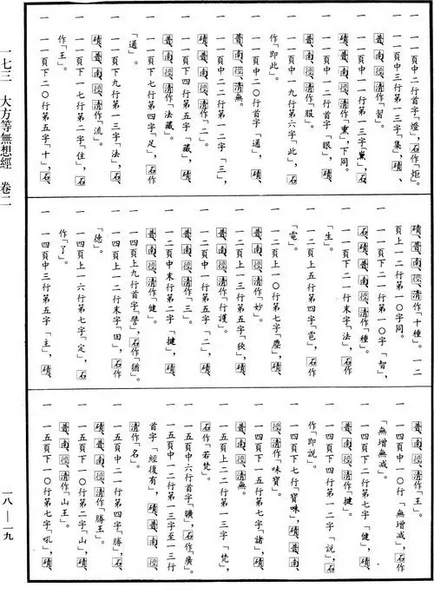 一一頁中二行首字「燈」，石作「炬」。
一一頁中三行第一三字「集」，磧、
普、南、徑、清作「習」。
一一頁中一一行第一三字「熏」，石、
磧、普、南、徑、清作「熏」，下同。
一一頁中一二行首字「眼」，磧、
普、南、徑、清作「服」。
一一頁中一九行第六字「此」，石
作「即此」。
一一頁中二〇行首字「通」，磧、
普、南、徑、清無。
一一頁中二二行第一二字「三」，
磧、普、南、徑、清作「二」。
一一頁下四行第五字「藏」，磧、
普、南、徑、清作「法藏」。
一一頁下七行第四字「足」，石作
「通」。
一一頁下九行第一三字「法」，
磧、普、南、徑、清作「流」。
一一頁下一七行第二字「住」，石
作「王」。
一一頁下二〇行第五字「十」，石、
磧、普、南、徑、清作「十種」。一二
頁上一二行第一〇字同。
一一頁下二一行第一〇字「智」，
石、磧、普、南、徑、清作「種」。
一一頁下二二行末字「法」，石作
「生」。
一二頁上五行第四字「皰」，石作
一二頁上一〇行第七字「塵」，磧、
普、南、徑、清作「妙」。
一二頁上一三行第五字「狹」，磧、
普、南、徑、清作「行護」。
一二頁中一行第五字「二」，磧、
普、南、徑、清作「三」。
一二頁中末行第二字「揵」，磧、
普、南、徑、清作「健」。
一四頁上九行首字「譬」，石作「猶」。
一四頁上一二行末字「田」，石作
「德」。
一四頁上一六行第七字「定」，石
作「了」。
一四頁中三行第五字「主」，磧、
普、南、徑、清作「王」。
一四頁中一〇行「無增減」，石作
「無增無減」。
一四頁下二行第七字「健」，磧、
普、南、徑、清作「揵」。
一四頁下四行第一二字「說」，石
作「即說」。
一四頁下七行「寶味」，磧、普、南、
徑、清作「味寶」。
一四頁下一五行第七字「諸」，磧、
普、南、徑、清無。
一五頁上二二行第一三字「梵」，
石作「若梵」。
一五頁中六行首字「曠」，石作「廣」。
一五頁中一二行第一三字至一三行
首字「經後有」，磧、普、南、徑、
清作「名」。
一五頁中二一行第四字「勝」，石、
磧、普、南、徑、清作「勝王」。
一五頁下一〇行第二字「山」，磧、
普、南、徑、清作「山王」。
一五頁下一〇行第七字「吼」，磧、
一七三　大方等無想經　卷二
一八—一九